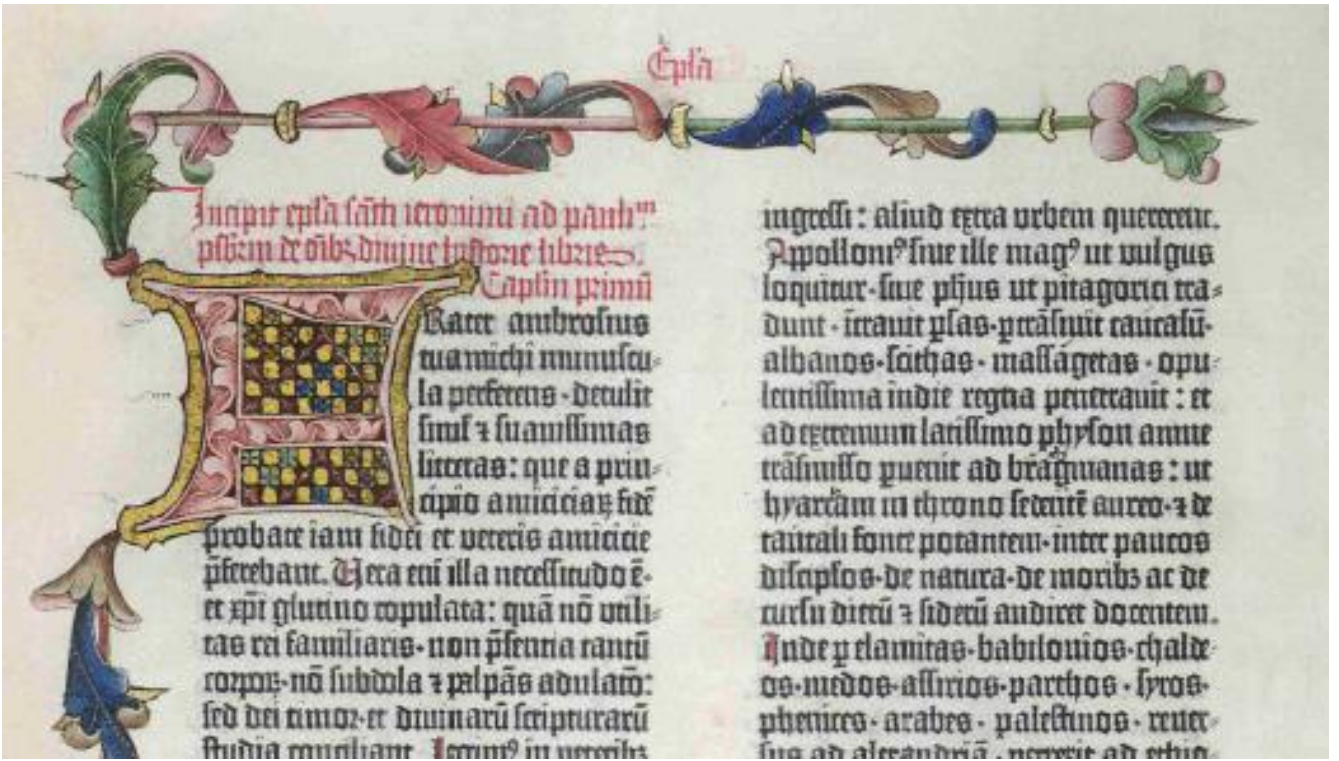 Epl̄a
Incipit epl̄a sācti ieronimi ad paulinū
p̄sbiterū de oībꝫ diuine historie libris.
Capl̄m primū
Frater ambrosius
tua michi munuscu-
la perferens · detulit
simul ⁊ suauissimas
litteras: que a prin-
cipio amiciciaꝝ fidē
probate iam fidei et veteris amicicie
p̄ferebant. Uera em̄ illa necessitudo ē·
et xp̄i glutino copulata: quā nō utili-
tas rei familiaris· non p̄sentia tantū
corporꝝ· nō subdola ⁊ palpās adulaco:
sed dei timor· et diuinarū scripturarū
studia conciliant. Legimꝰ in veteribꝫ
ingressi: aliud extra urbem quererent.
Appollonıꝰ siue ille magꝰ ut vulgus
loquitur· siue ph̄us ut pitagorici tra-
dunt · ītrauit p̄sas· ptrāsiuit caucasū·
albanos· scithas · massagetas · opu-
lentissima indie regna penetrauit: et
ad extremum latissimo physon amne
trāsmisso puenit ad bragmanas: ut
hyarcam in throno sedentē aureo· ⁊ de
tantali fonte potantem· inter paucos
discipl̄os· de natura· de moribꝫ ac de
cursu dierū ⁊ siderū audiret docentem.
Inde ꝑ elamitas· babilonios· chalde-
os· medos· assirios· parthos · syros·
phenices· arabes · palestinos· reuer-
sus ad alexandriā · perrexit ad ethio-